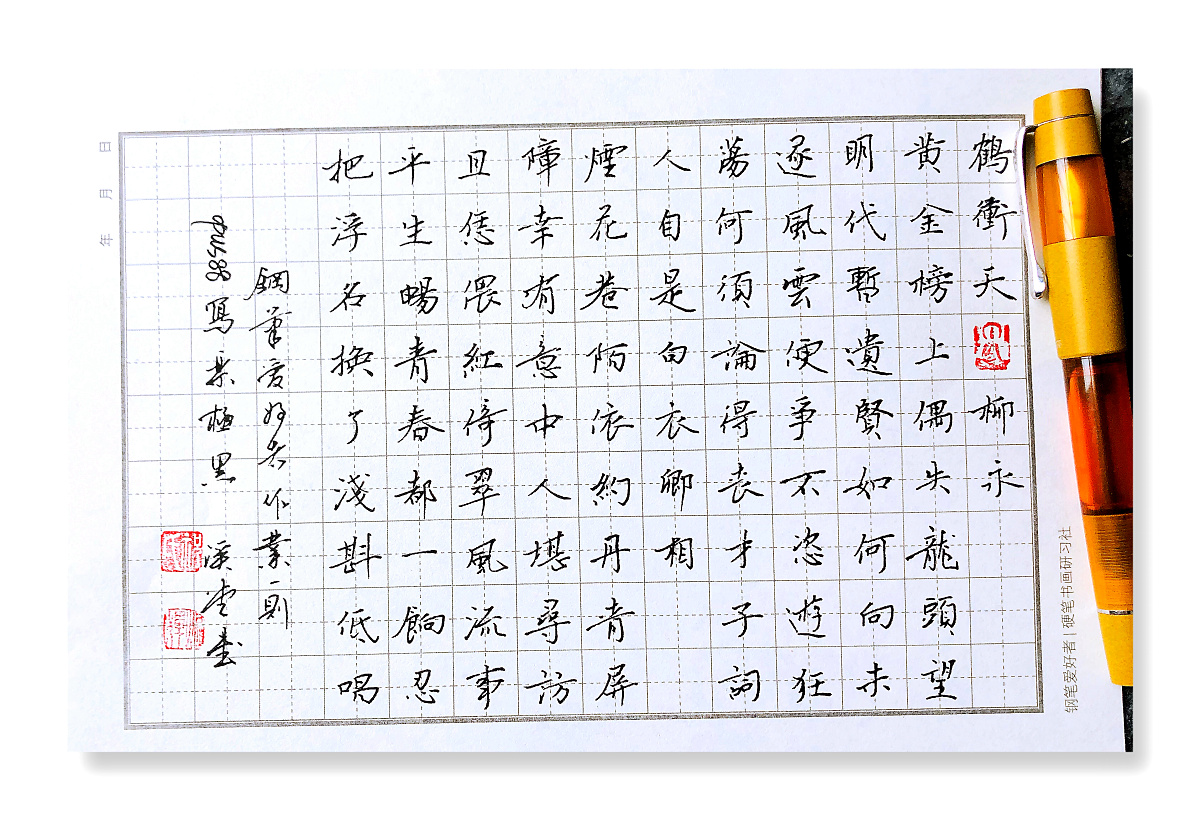 鶴衝天 柳永
黄金榜上偶失龍頭望
明代暫遺賢如何向未
逐風雲便爭不恣遊狂
蕩何須論得喪才子詞
人自是白衣卿相
煙花巷陌依約丹青屏
障幸有意中人堪尋訪
且恁偎紅倚翠風流事
平生暢青春都一餉忍
把浮名換了淺斟低唱
鋼筆愛好者作業一則
寫樂極黑 溪堂書
年 月 日
钢笔爱好者|硬笔书画研习社